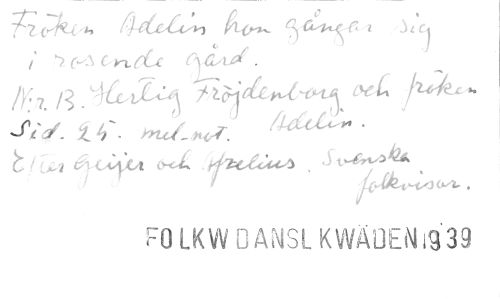 Fröken Adelin hon gångar sig
i rosende gård.
N:r. 13. Hertig Fröjdenborg och fröken
Sid. 25. mel-not. Adelin.
Efter Geijer och Afzelius. Svenska
folkvisor.
FOLKW DANSLKWÄDEN 1939